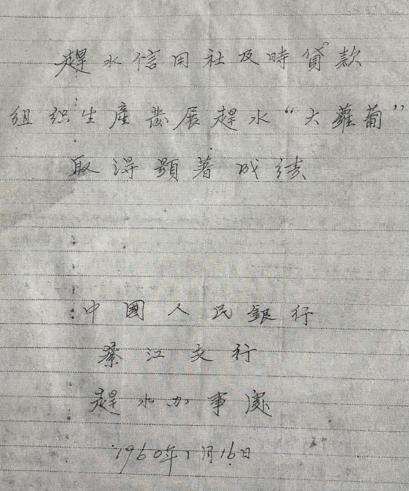 趕水信用社及時貸款
组织生產發展趕水“大蘿蔔”
取得顕著成績
中國人民銀行
綦江支行
趕水办事處
1960年1月16日